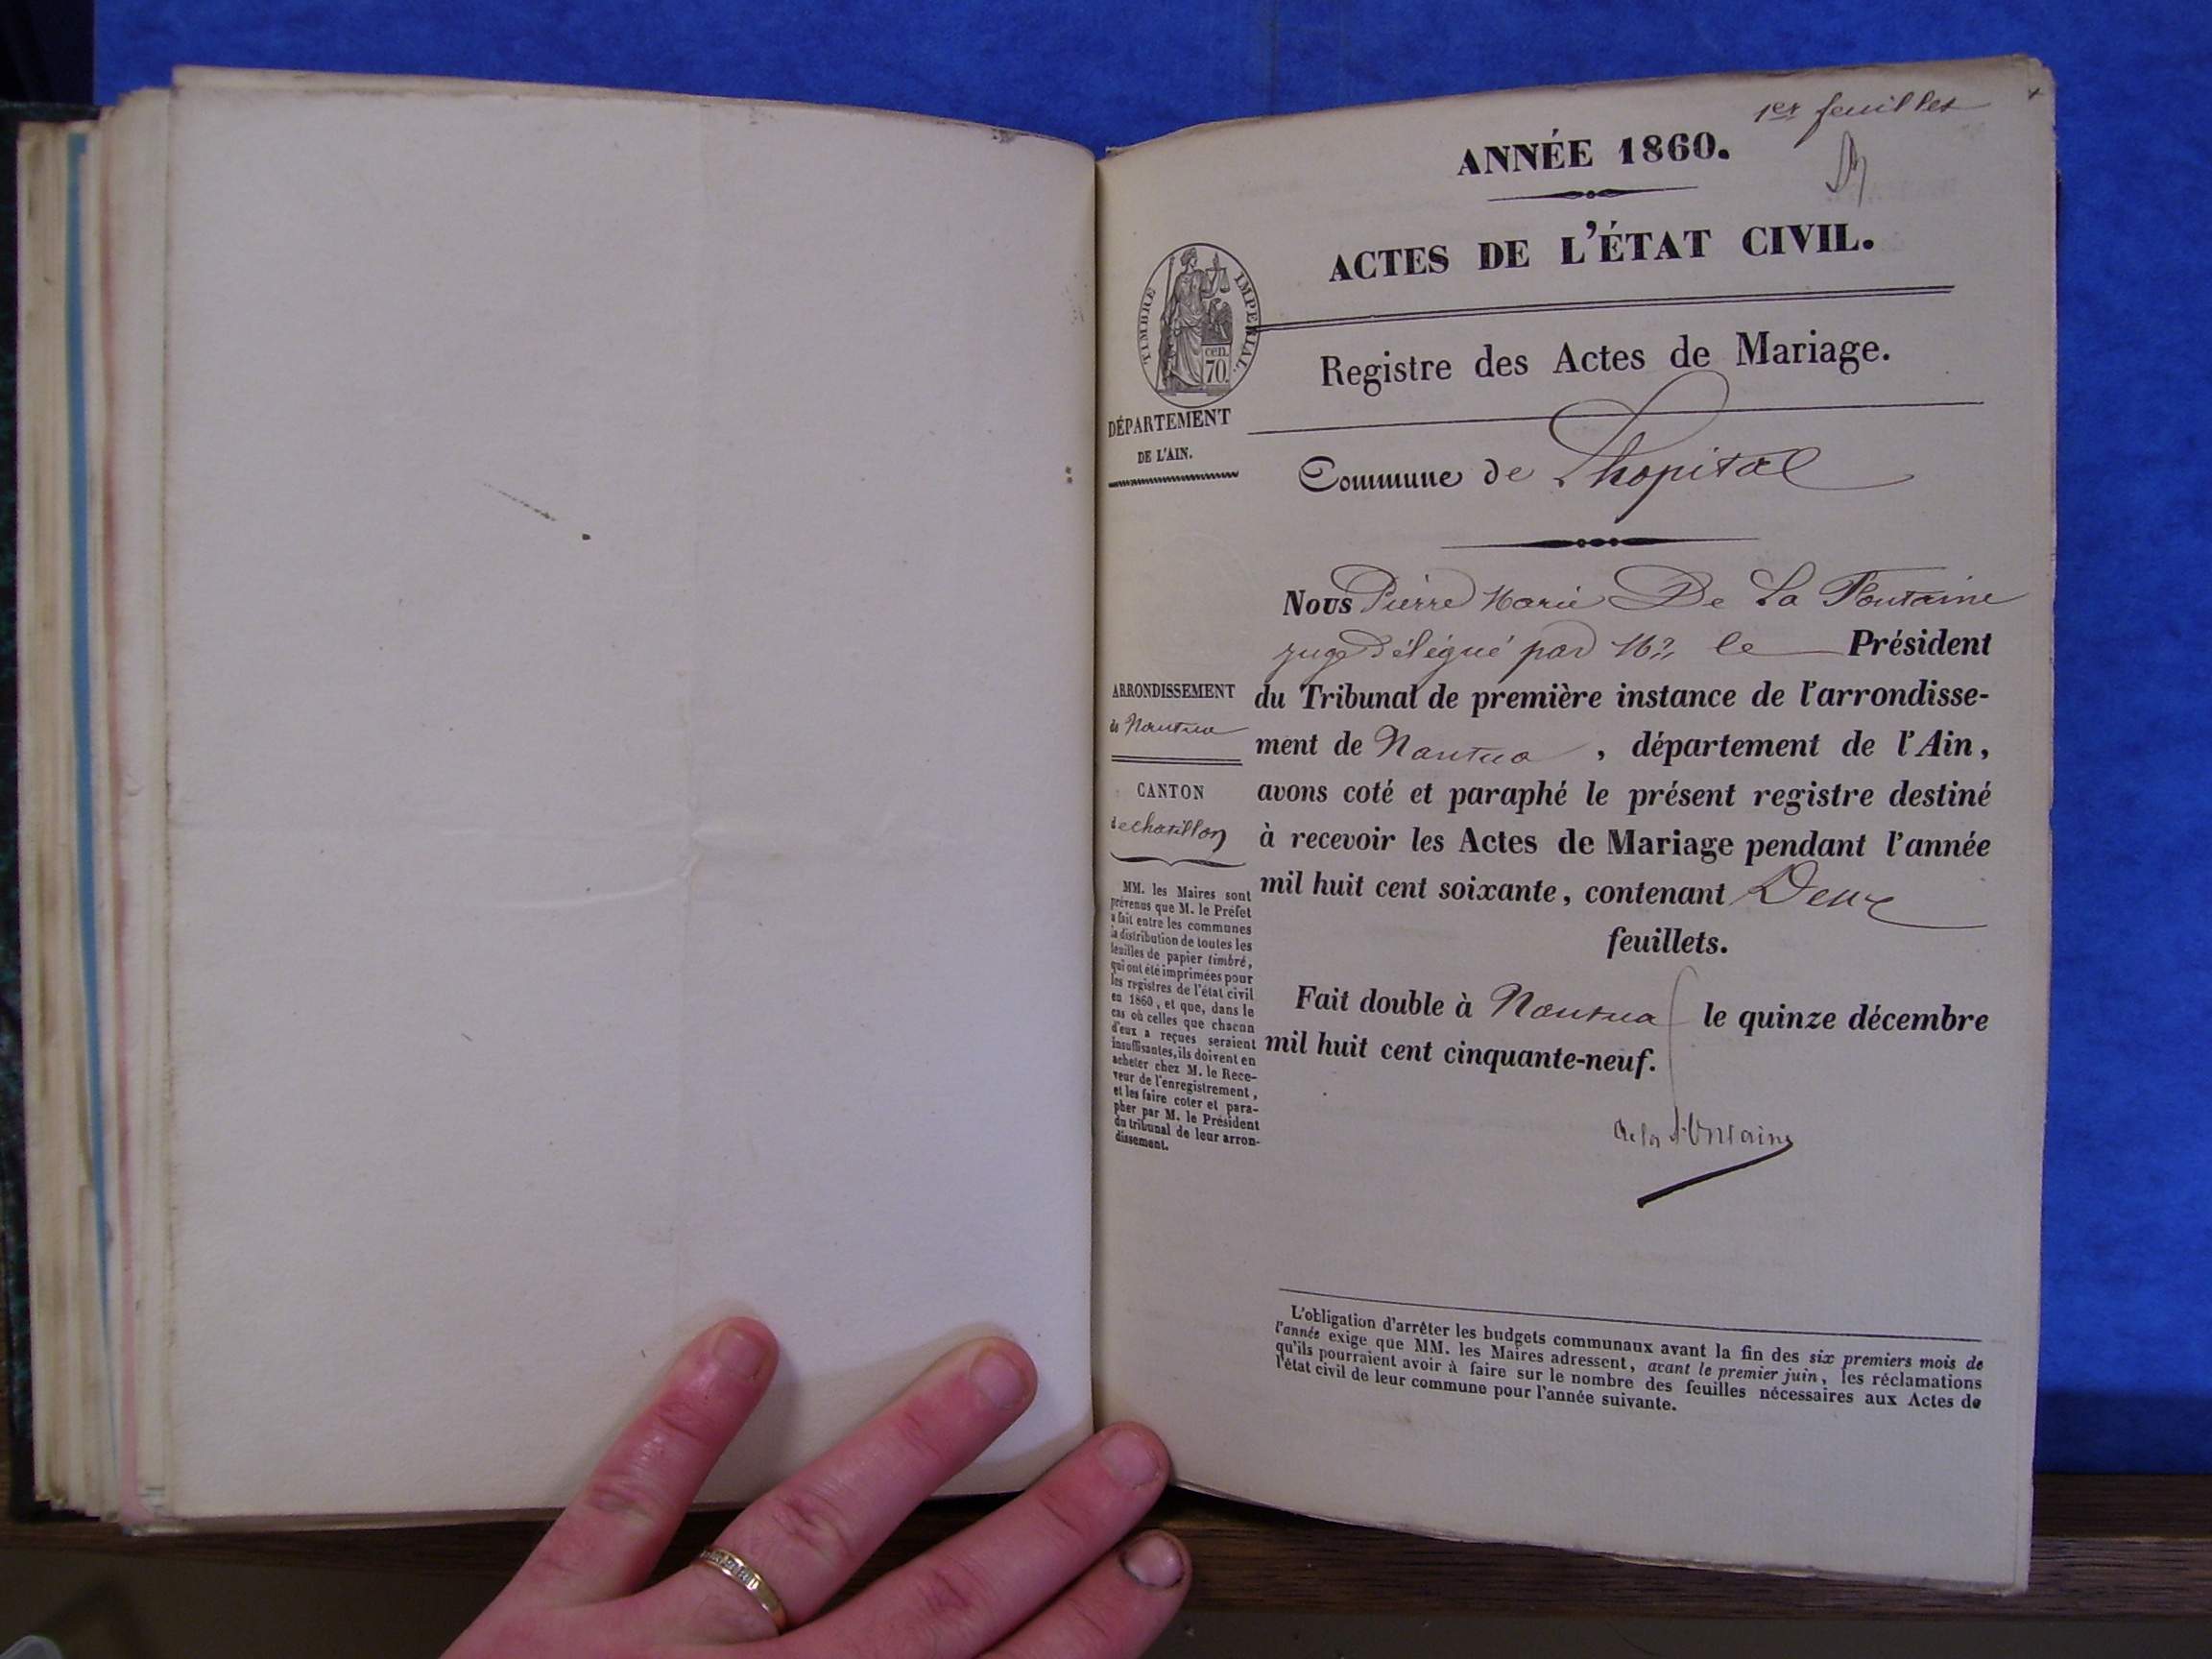 1er feuillet
ANNÉE 1860.
ACTES DE L'ÉTAT CIVIL.
TIMBRE IMPERIAL.
cen.
70.
Registre des Actes de Mariage.
DÉPARTEMENT
DE L'AIN.
Commune de Lhopital
Nous Pierre Marie De La Fontaine
juge Délégué par Mr. le Président
du Tribunal de première instance de l'arrondisse-
ment de Nantua , département de l'Ain,
avons coté et paraphé le présent registre destiné
à recevoir les Actes de Mariage pendant l'année
mil huit cent soixante, contenant Deux
feuillets.
Fait double à Nantua le quinze décembre
mil huit cent cinquante-neuf.
de la Fontaine
ARRONDISSEMENT
de Nantua
CANTON
de chatillon
MM. les Maires sont
prévenus que M. le Préfet
a fait entre les communes
la distribution de toutes les
feuilles de papier timbré,
qui ont été imprimées pour
les registres de l'état civil
en 1860, et que, dans le
cas où celles que chacun
d'eux a reçues seraient
insuffisantes, ils doivent en
acheter chez M. le Rece-
veur de l'enregistrement,
et les faire coter et para-
pher par M. le Président
du tribunal de leur arron-
dissement.
L'obligation d'arrêter les budgets communaux avant la fin des six premiers mois de
l'année exige que MM. les Maires adressent, avant le premier juin, les réclamations
qu'ils pourraient avoir à faire sur le nombre des feuilles nécessaires aux Actes de
l'état civil de leur commune pour l'année suivante.